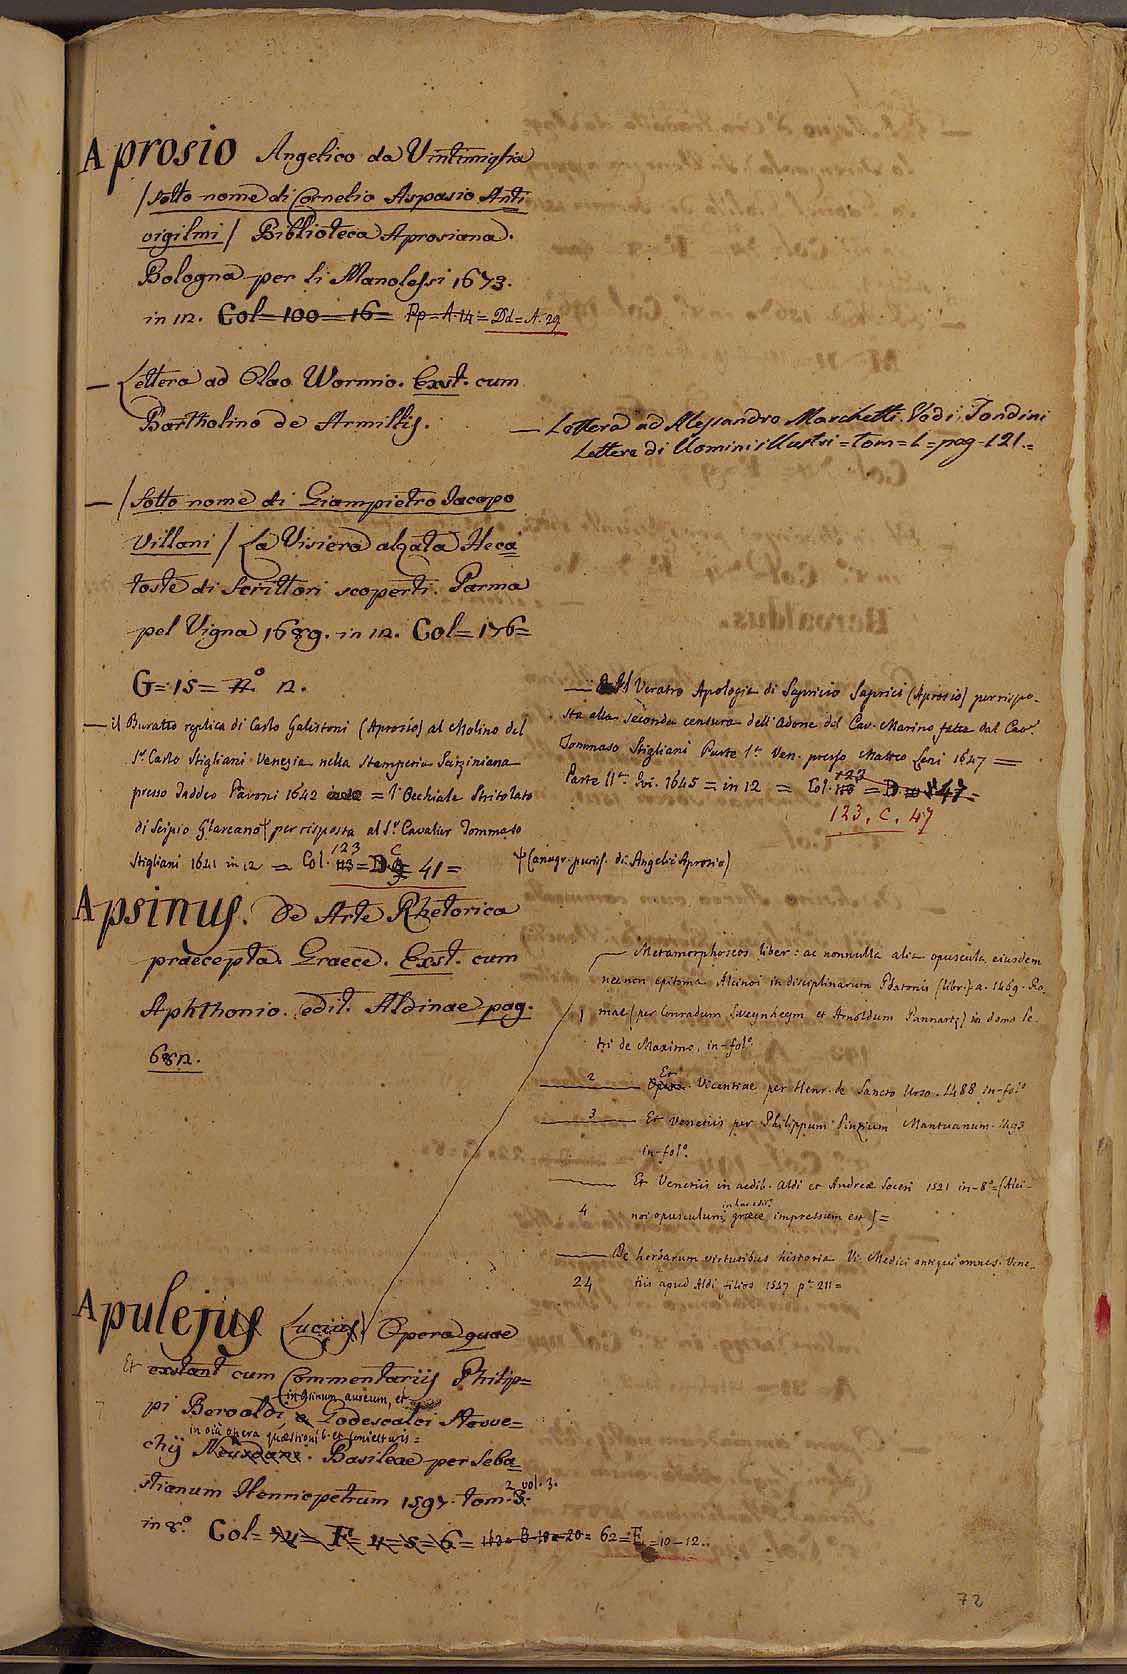 Aprosio Angelico da Vintimiglia
/ sotto nome di Cornelio Aspasio Anti
vigilmi / Biblioteca Aprosiana.
Bologna per li Manolessi 1673.
in 12. Col = 100 = 16 = Pp = A 14 = Dd = A. 29
— Lettera ad Olao Wormio. Exst. cum
Bartholino de Armillis.
— Lettera ad Alessandro Marchetti. Vedi Fondini
Lettere di Uomini illustri = tom = 1 = pag = 121. =
— / Sotto nome di Giampietro Jacopo
Villani / La Visiera alzata Heca
toste di Scrittori scoperti. Parma
pel Vigna 1689. in 12. Col = 176 =
G = 15 = n.o 12.
— il Buratto replica di Carlo Galistoni (Aprosio) al Molino del
Sr. Carlo Stigliani. Venezia nella Stamperia Sarziniana
presso Taddeo Pavoni 1642 = l'Occhiale Stritolato
di Scipio Glareano Ψ per risposta al Sr. Cavalier Tommaso
Stigliani 1641 in 12 = Col. 123 = D. C 41 =
— Il Veratro Apologia di Sapricio Saprici (Aprosio) per rispo-
sta alla seconda censura dell'Adone del Cav. Marino fatta dal Cavr.
Tommaso Stigliani Parte 1a. Ven. presso Matteo Leni 1647 =
Parte IIa. Ivi. 1645 = in 12 = Col. 123 = D = 47 =
123. C. 47
Ψ (anagr. puriss. di Angelici Aprosio)
Apsinus. De Arte Rhetorica
praecepta. Graece. Exst. cum
Aphthonio. edit. Aldinae pag.
682.
1 — Metamorphoseos liber: ac nonnulla alia opuscula eiusdem
necnon epitoma Alcinoi in disciplinarum Platonis (libr.) a. 1469. Ro-
mae (per Conradum Sweynheym et Arnoldum Pannartz) in domo Pe-
tri de Maximo, in-folo.
2 — Opera Et Vicentiae per Henr. de Sancto Urso. 1488 in-folo
3 — Et Venetiis per Philippum Pinzium Mantuanum. 1493
in-folo.
— Et Venetiis in aedib. Aldi et Andreae Soceri 1521 in-8o = (Alci-
4 noi opusculum in hac edite. graece impressum est) =
— De herbarum virtutibus historia. V. Medici antiqui omnes. Vene-
24 tiis apud Aldi filios 1547 pa. 211 =
Apulejus Lucius / Opera quae
Et exstant cum Commentariis Philip=
pi Beroaldi in Asinum aureum, et Godescalci Stewe=
chij in oia opera quaestionib. et coniecturis = Basileae per Seba
stianum Henricpetrum 1597. tom. 2 vol. 3.
in 8o. Col = 74 = F = 4 = 5 = 6 = B 18 = 20 = 62 = E = 10 – 12..
72